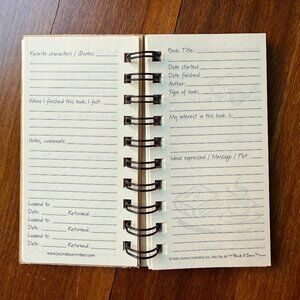 Favorite characters / Quotes:
When I finished this book, I felt:
Notes, comments:
Loaned to:
Date: Returned:
Loaned to:
Date: Returned:
Loaned to:
Date: Returned:
www.journalsunlimited.com
Book Title:
Date started:
Date finished:
Author:
Type of book:
My interest in this book is:
Ideas expressed / Message / Plot:
Journals Unlimited, Inc. Bay City, MI "Write it Down"